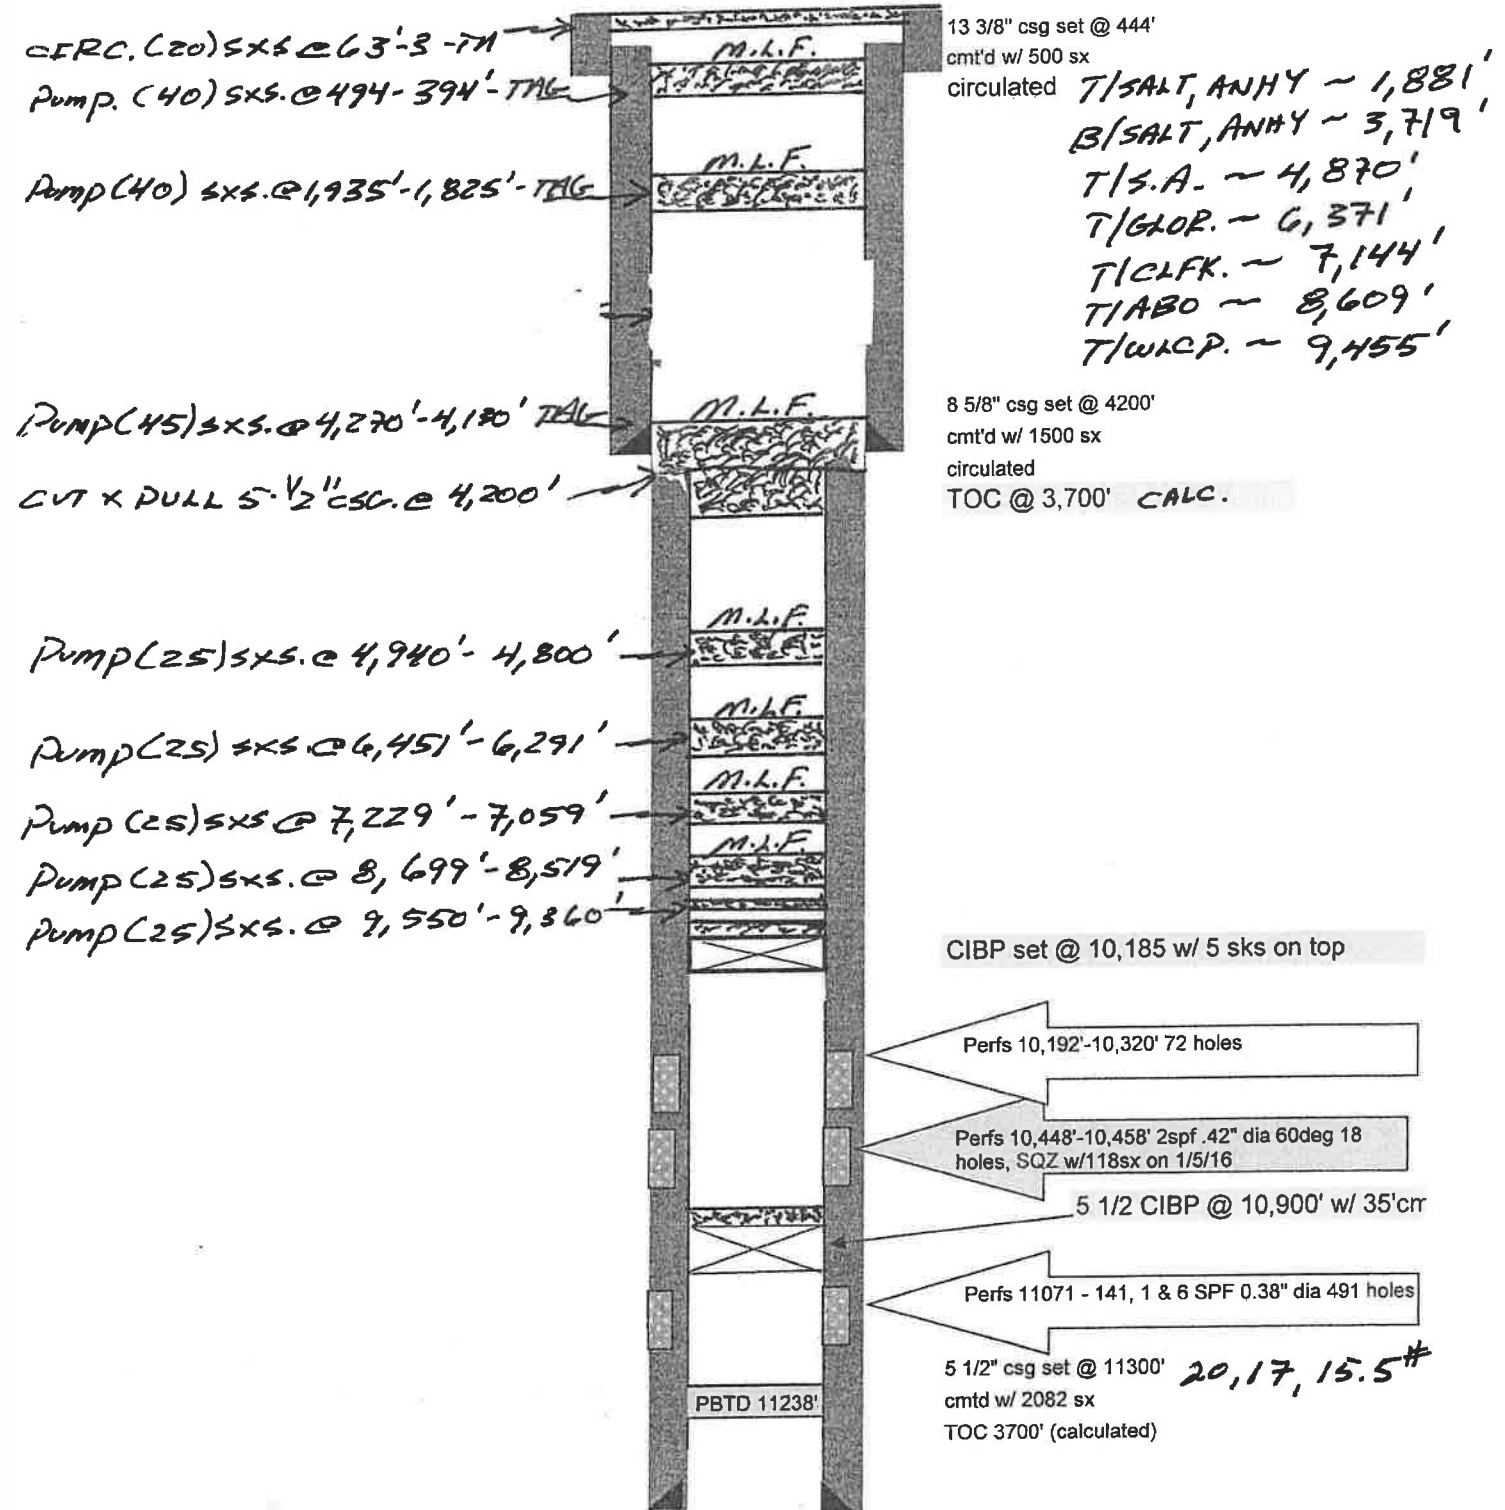 CIRC. (20) SXS @ 63'-3'
Pump. (40) SXS. @ 494-394'-TAG
Pump (40) SXS. @ 1,935'-1,825'-TAG
Pump (45) SXS. @ 4,270'-4,130' TAG
CUT X PULL 5-1/2" CSG. @ 4,200'
Pump (25) SXS. @ 4,940'-4,800'
Pump (25) SXS @ 6,451'-6,291'
Pump (25) SXS @ 7,229'-7,059'
Pump (25) SXS. @ 8,699'-8,519'
Pump (25) SXS. @ 9,550'-9,360'
M.L.F.
M.L.F.
M.L.F.
M.L.F.
M.L.F.
M.L.F.
M.L.F.
PBTD 11238'
13 3/8" csg set @ 444'
cmt'd w/ 500 sx
circulated
T/SALT, ANHY ~ 1,881'
B/SALT, ANHY ~ 3,719'
T/S.A. ~ 4,870'
T/GLOR. ~ 6,371'
T/CLFK. ~ 7,144'
T/ABO ~ 8,609'
T/WLCP. ~ 9,455'
8 5/8" csg set @ 4200'
cmt'd w/ 1500 sx
circulated
TOC @ 3,700' CALC.
CIBP set @ 10,185 w/ 5 sks on top
Perfs 10,192'-10,320' 72 holes
Perfs 10,448'-10,458' 2spf .42" dia 60deg 18
holes, SQZ w/118sx on 1/5/16
5 1/2 CIBP @ 10,900' w/ 35'cm
Perfs 11071 - 141, 1 & 6 SPF 0.38" dia 491 holes
5 1/2" csg set @ 11300' 20, 17, 15.5#
cmtd w/ 2082 sx
TOC 3700' (calculated)